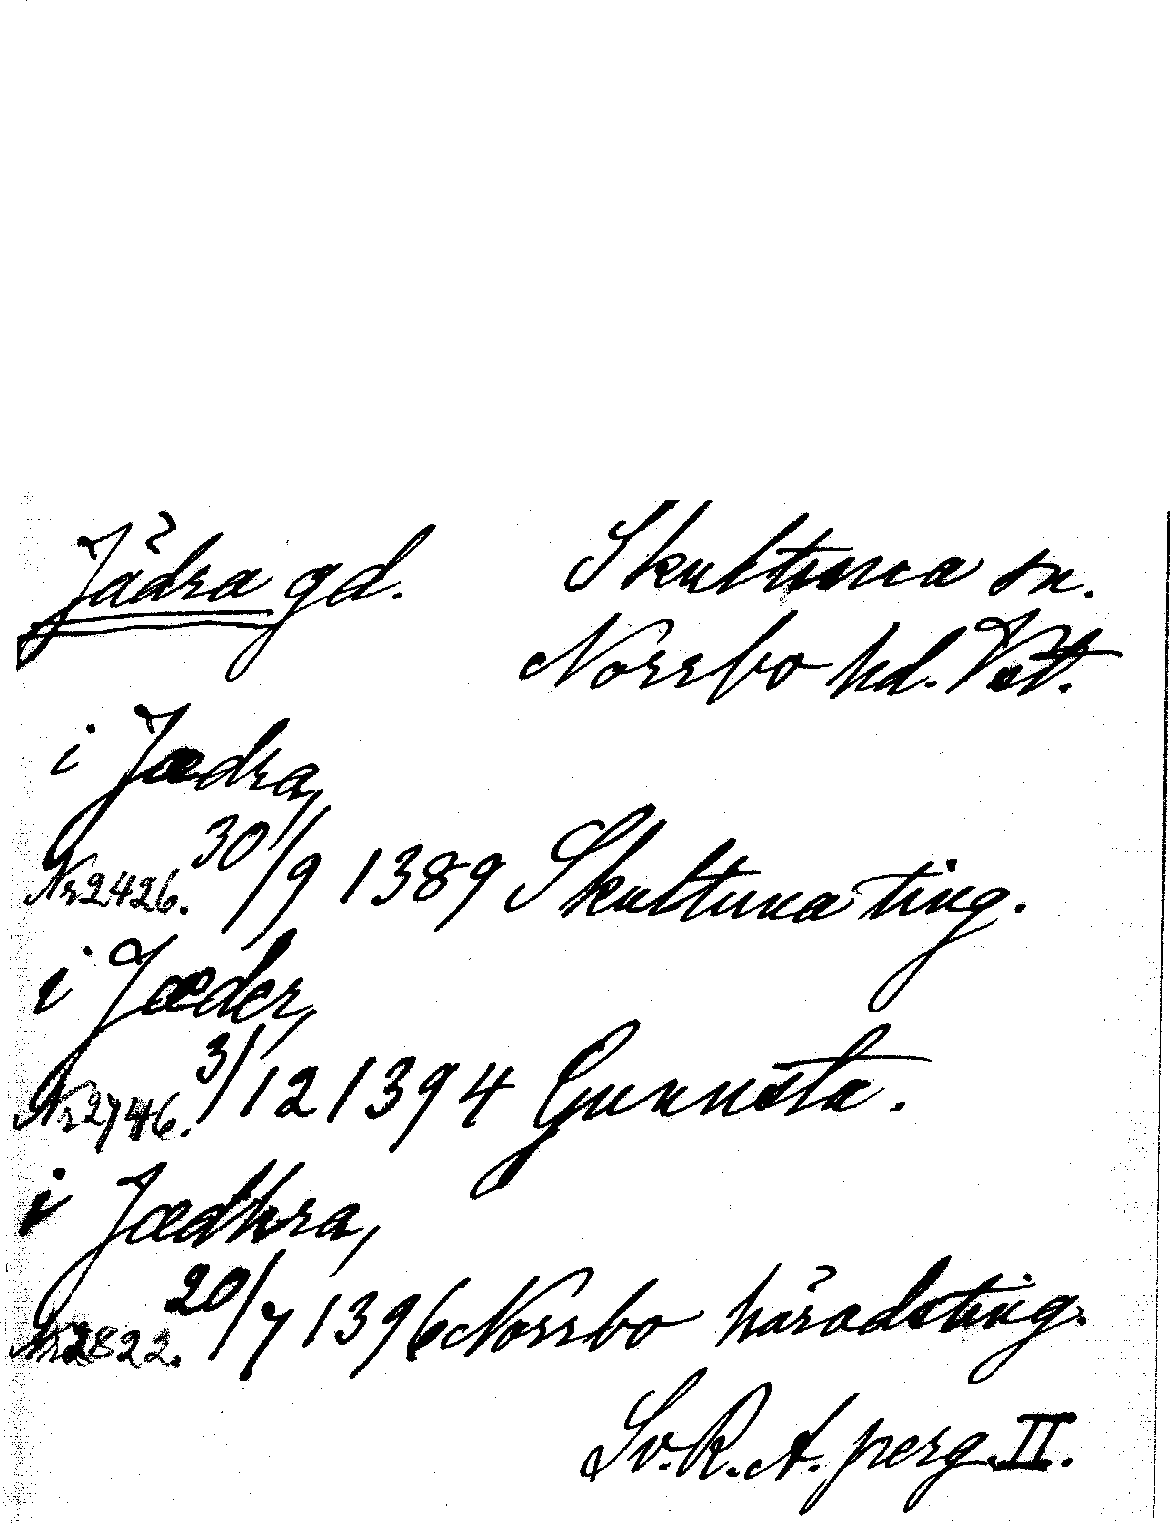 Jädra gd. Skultuna sn.
Norrbo hd. Vstl.
i Jædra,
Nr 2426. 30/9 1389 Skultuna ting.
i Jæder,
Nr 2746. 3/12 1394 Gunnsta.
i Jædhra,
Nr 2822. 20/7 1396 Norrbo häradsting.
Sv. R. A. perg. II.